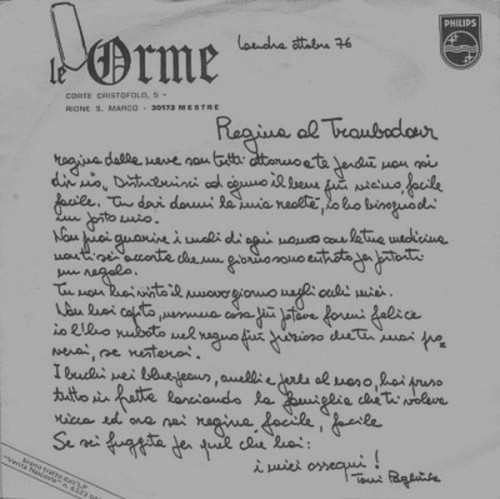 le Orme
Londra ottobre 76
PHILIPS
CORTE CRISTOFOLO, 5 -
RIONE S. MARCO - 30173 MESTRE
Regina al Troubadour
regina della neve son tutti attorno a te perché non sai
dir no, Distribuisci ad ognuno il bene più vicino, facile
facile. Tu devi darmi la mia realtà, io ho bisogno di
un posto mio.
Non puoi guarire i mali di ogni uomo con la tua medicina
non ti sei accorta che un giorno sono entrato per portarti
un regalo.
Tu non hai visto il nuovo giorno negli occhi miei.
Non hai capito, nessuna cosa più poteva farmi felice
io l'ho rubato nel regno più prezioso che tu mai po=
verai, se resterai.
I buchi nei blue-jeans, anelli e perle al naso, hai preso
tutto in fretta lasciando la famiglia che ti voleva
ricca ed ora sei regina, facile, facile
Se sei fuggita per quel che hai:
i miei ossequi!
Toni Pagliuca
brano tratto dall'LP
"Verità Nascoste" n. 6323